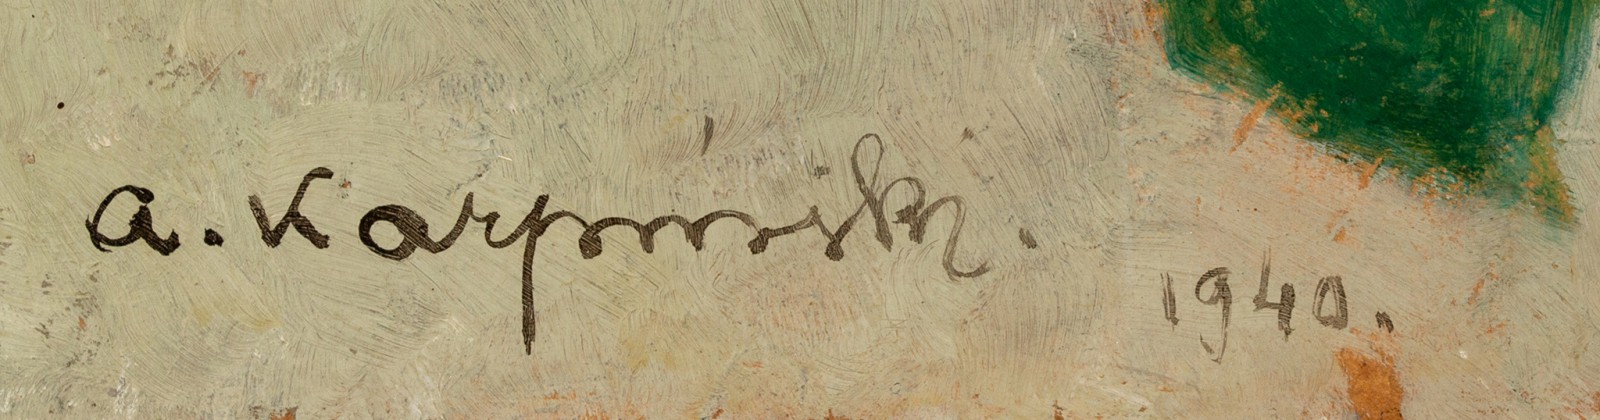 a. Karpiński.
1940.